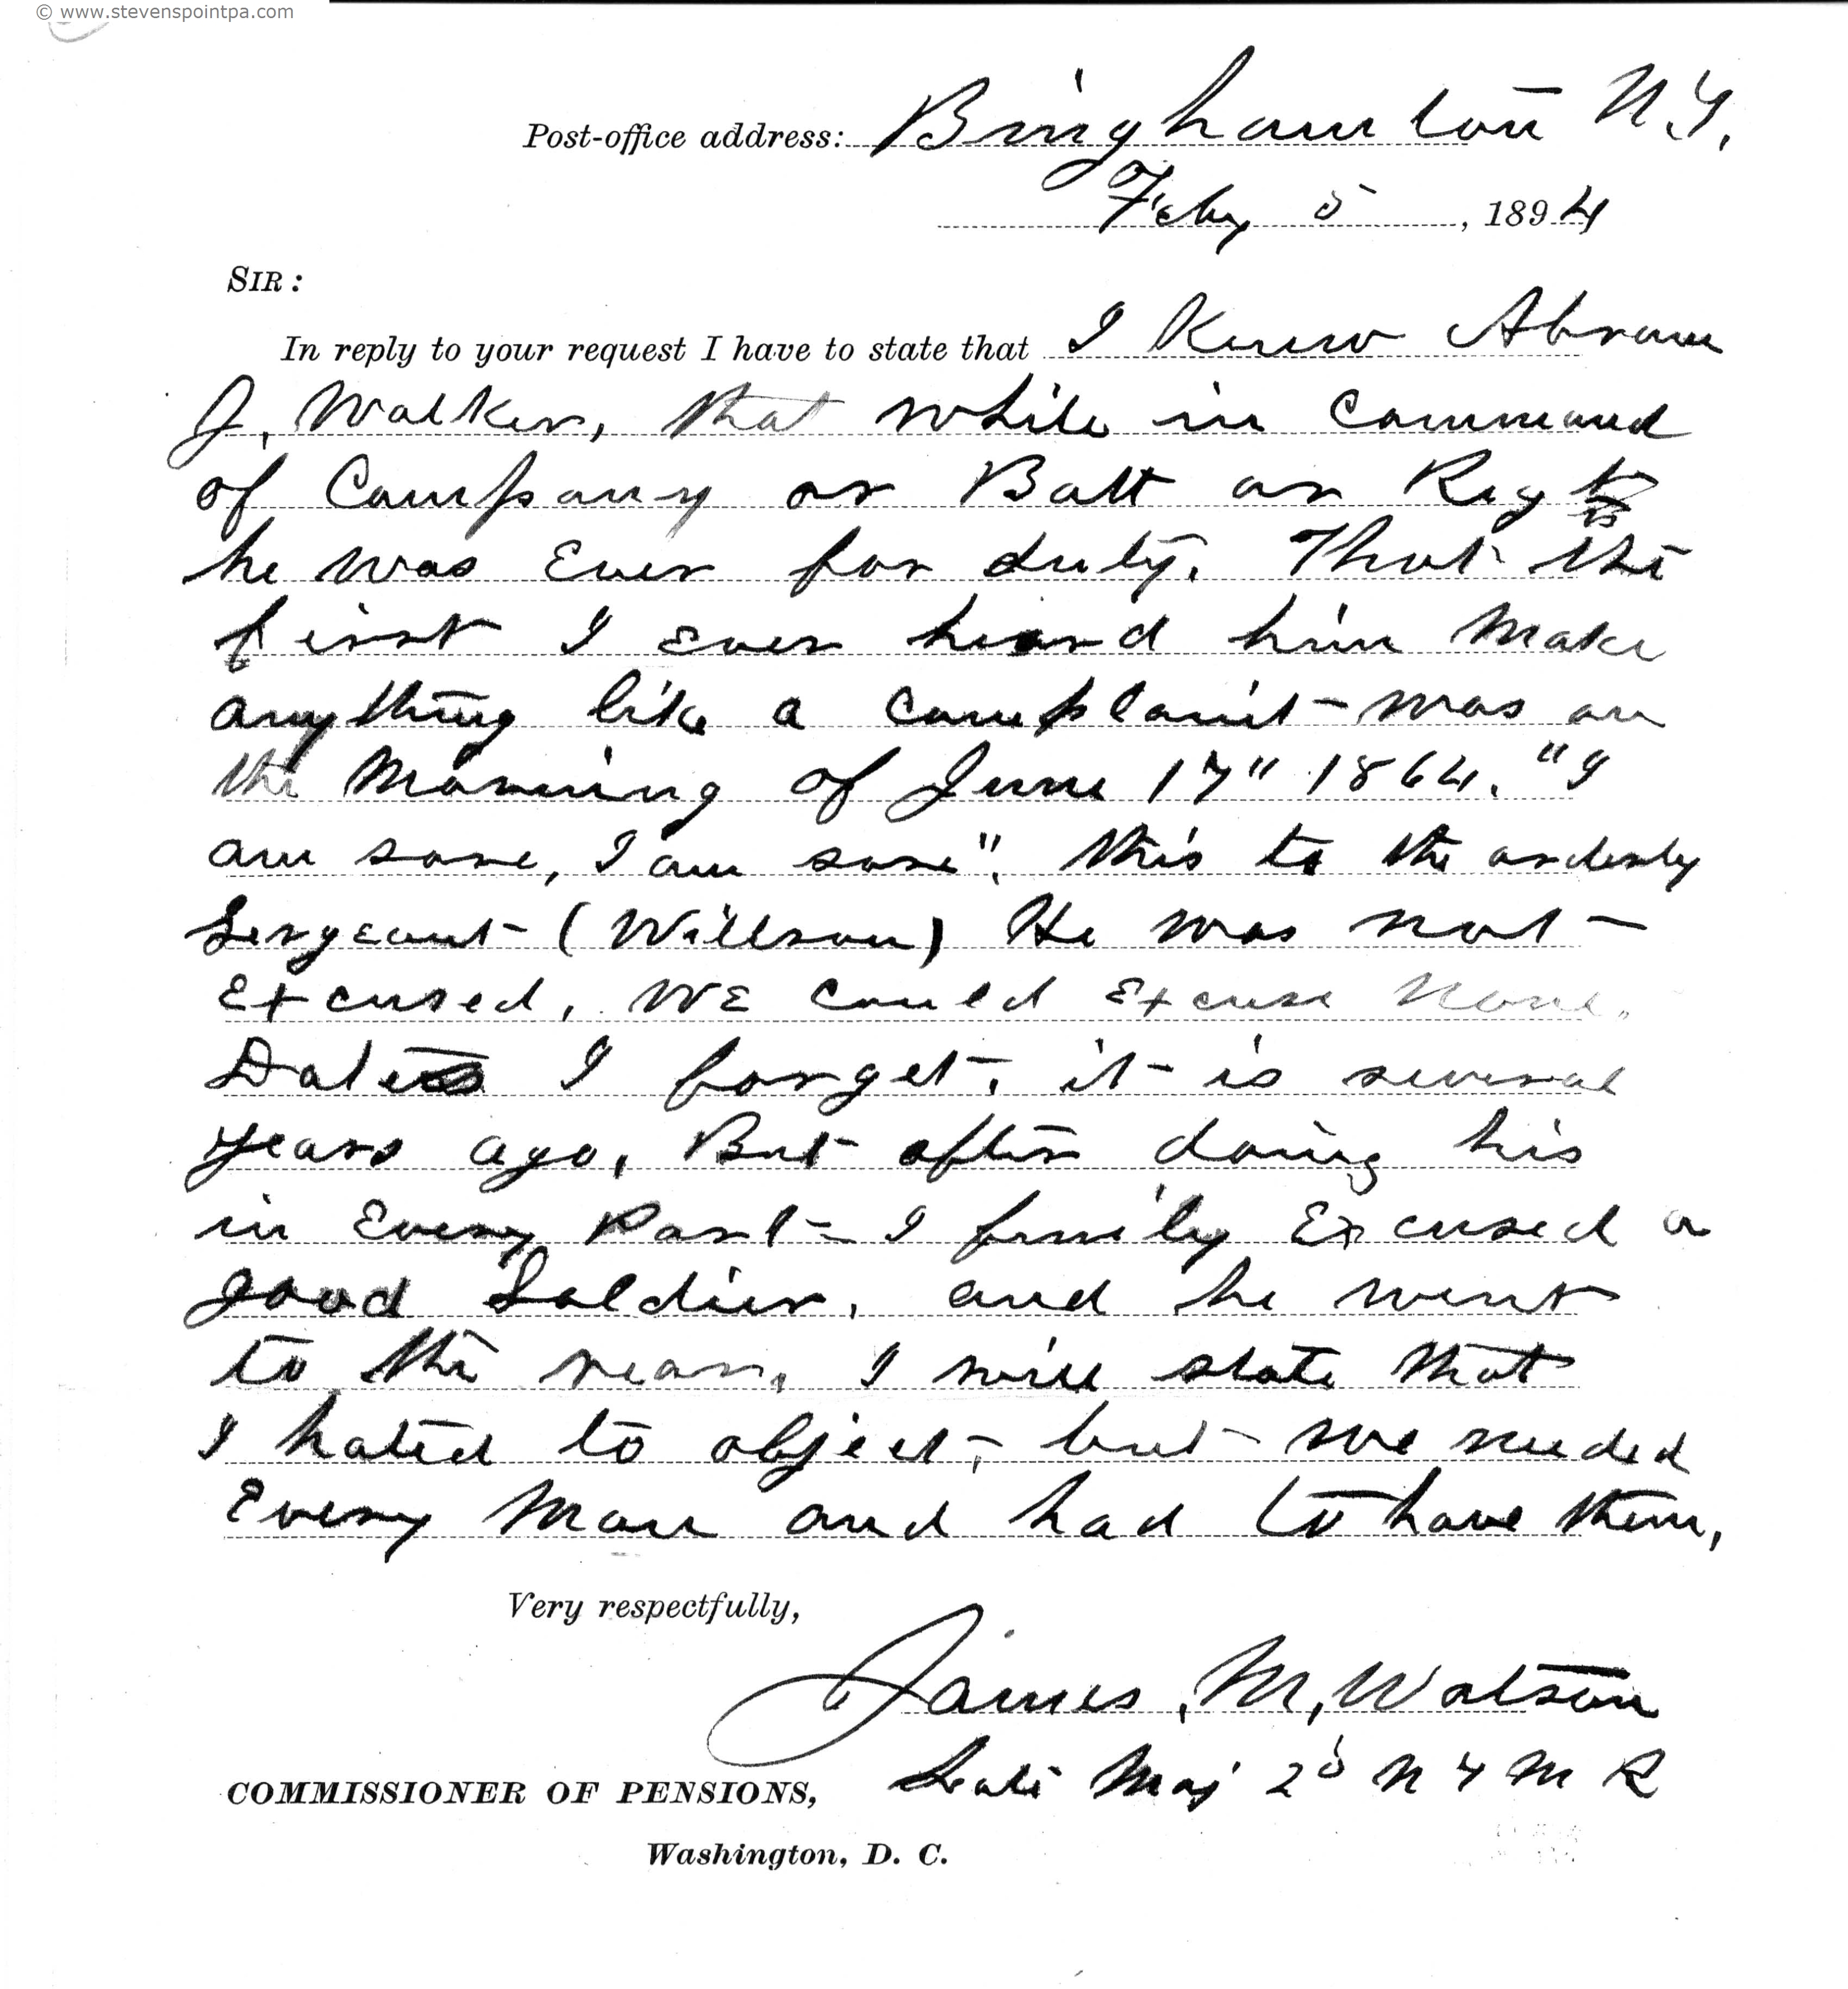 © www.stevenspointpa.com
Post-office address: Binghamton N.Y.
Feby 5, 1894
SIR:
In reply to your request I have to state that I Knew Abram
J. Walker, that while in Command
of Company or Batt or Regt
he was Ever for duty. That the
first I ever heard him Make
anything like a Complaint- was on
the Morning of June 17" 1864. "I
am sore, I am sore". this to the orderly
Sergeant- (Willson) He was not-
Excused. WE Could Excuse None.
Dates I forget. it- is several
years ago. But after doing his
in Every Part- I finily Excused a
good Soldier. and he went
to the rear. I will state that
I hated to object- but- we needed
Every Man and had to have them.
Very respectfully,
James. M. Watson
Late Maj 2d N Y M R
COMMISSIONER OF PENSIONS,
Washington, D. C.